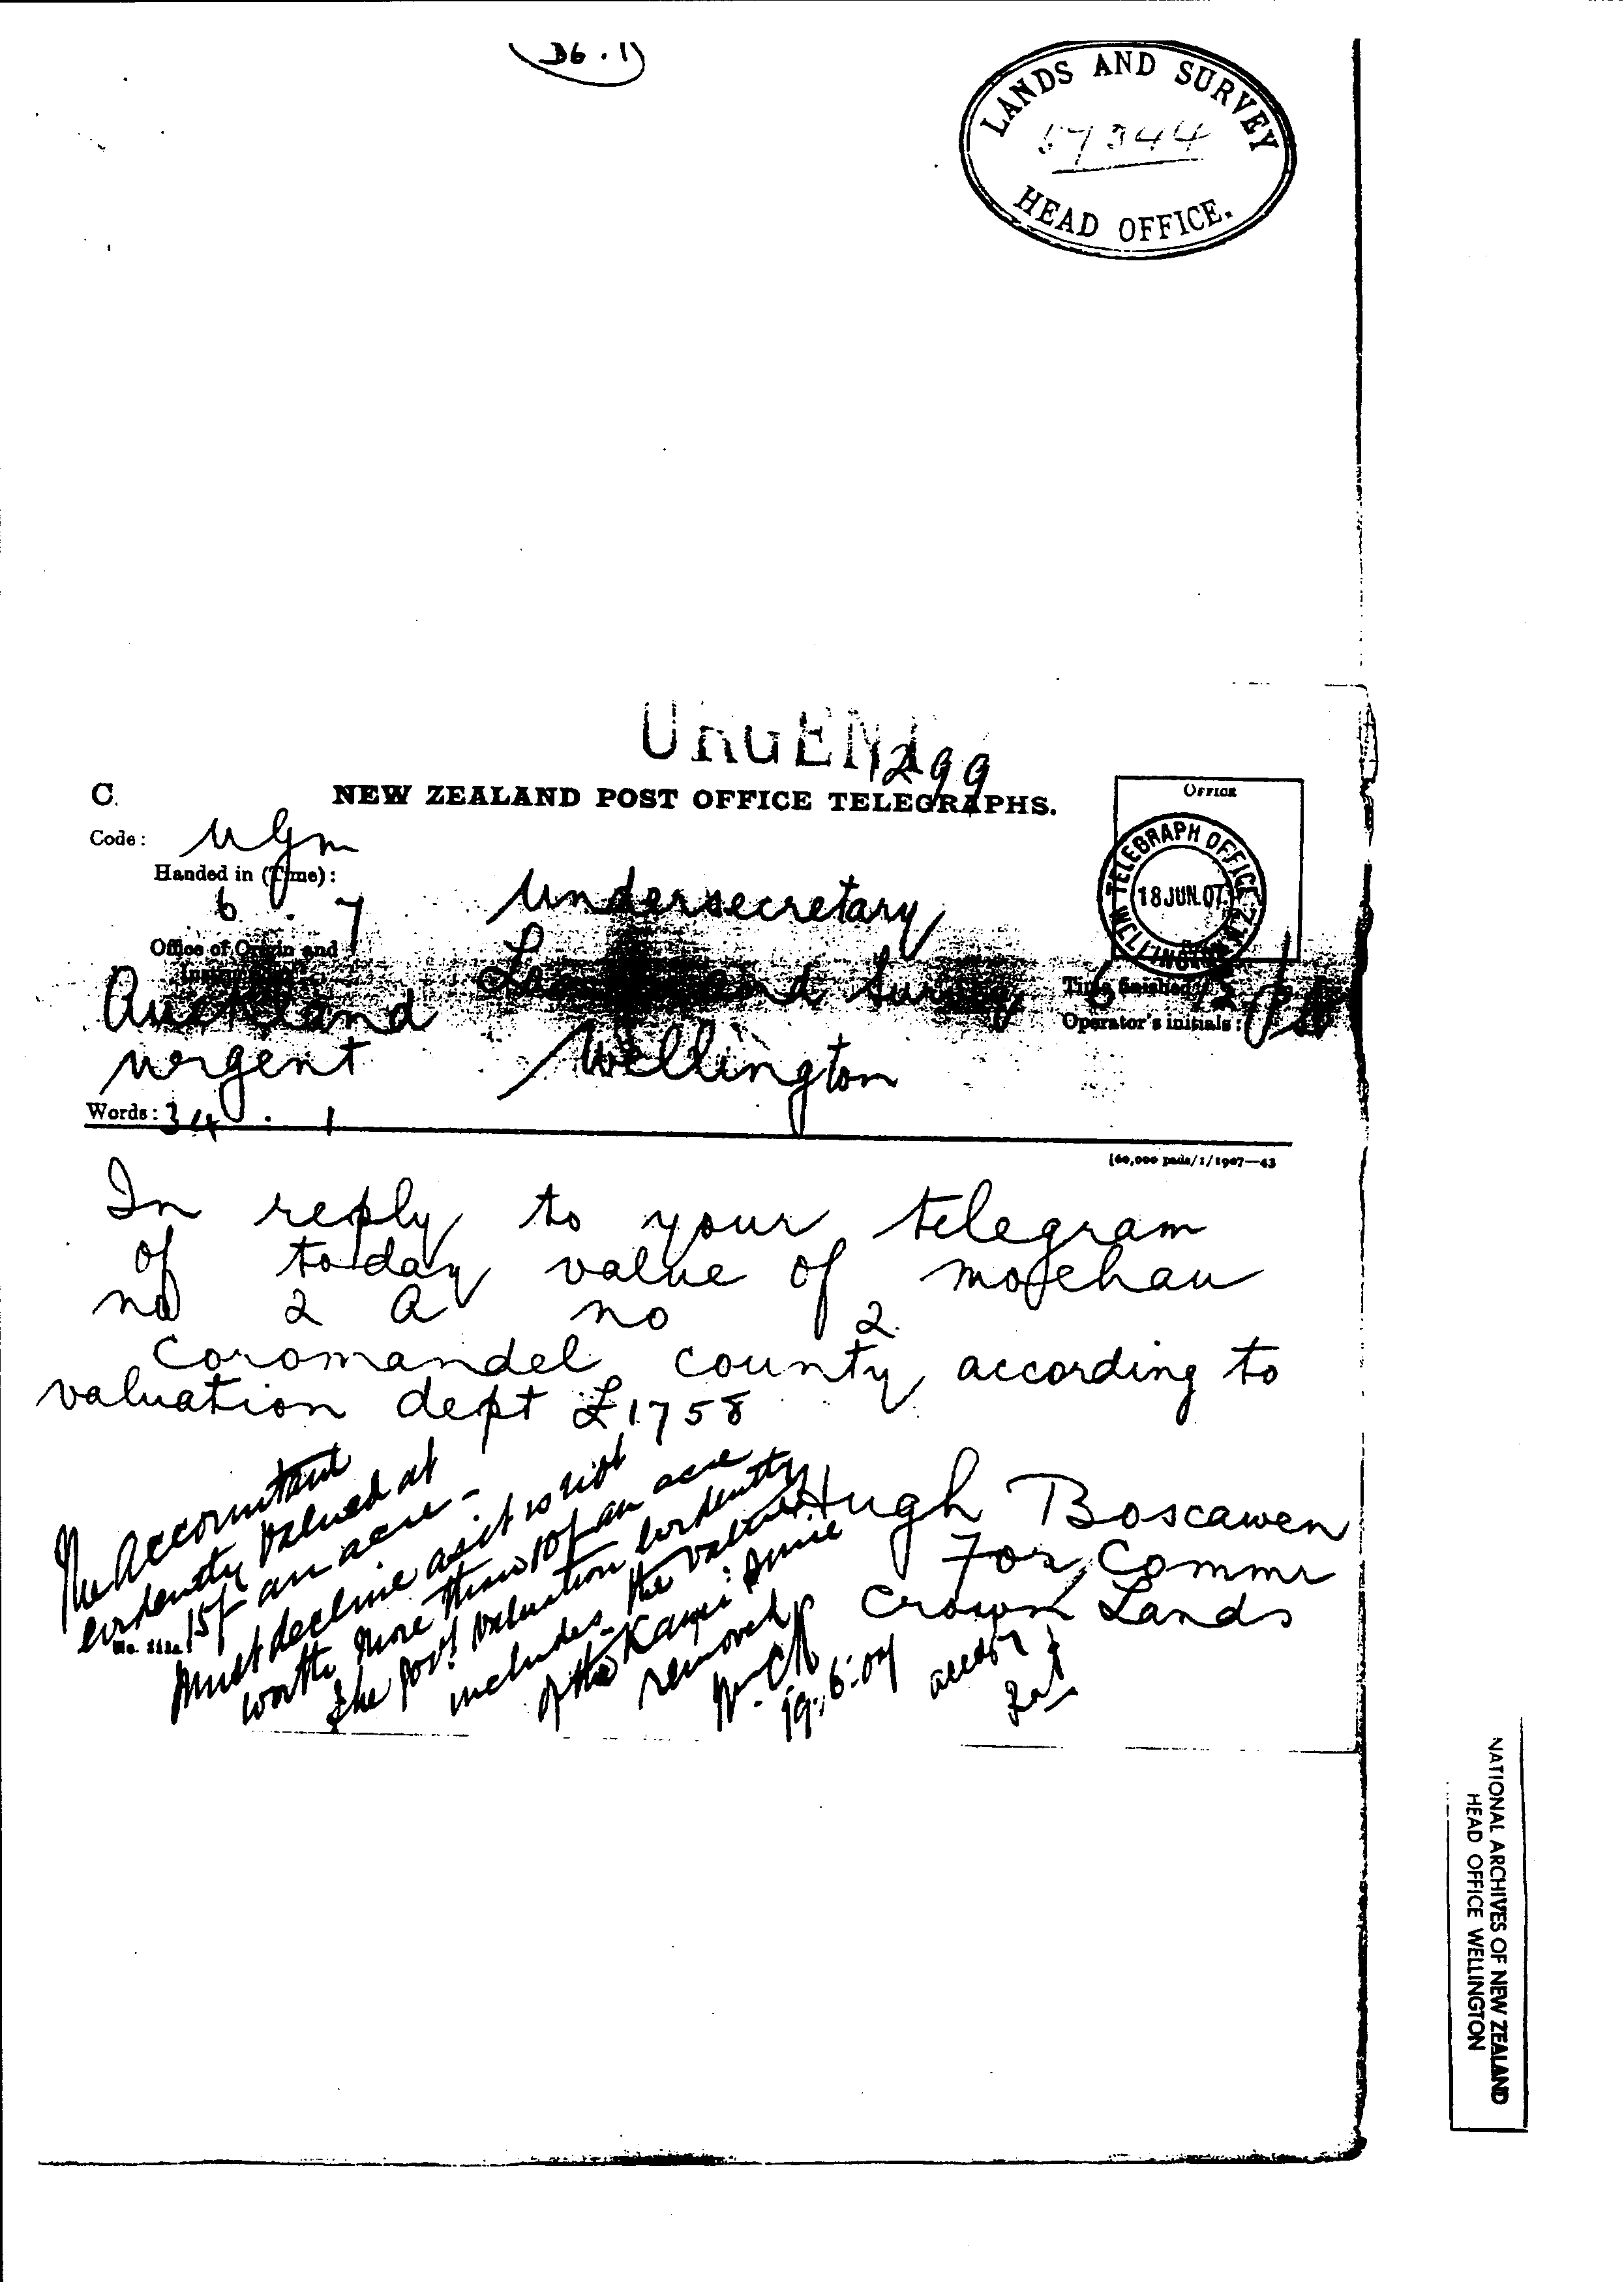 D6.1
LANDS AND SURVEY
57344
HEAD OFFICE.
URGENT
1299
C.
NEW ZEALAND POST OFFICE TELEGRAPHS.
OFFICE
Code:
Handed in (Time):
6 . 7
TELEGRAPH OFFICE N.Z. WELLINGTON
18 JUN. 07
Undersecretary
Office of Origin and
Lands and Survey
Auckland
Time finished: 6
Operator's initials:
urgent
Wellington
Words: 34 . 1
[60,000 pads/1/1907—43
In reply to your telegram
of today value of moehau
no 2 a no 2
Coromandel county according to
valuation dept £1758
Hugh Boscawen
For Commr
Crown Lands
The Accountant
evidently valued at
15/- an acre -
No. 111a.
Must decline as it is not
worth more than 10/- an acre
The Govt valuation evidently
includes the value
of the Kauri since
removed
19.6.07
NATIONAL ARCHIVES OF NEW ZEALAND
HEAD OFFICE WELLINGTON